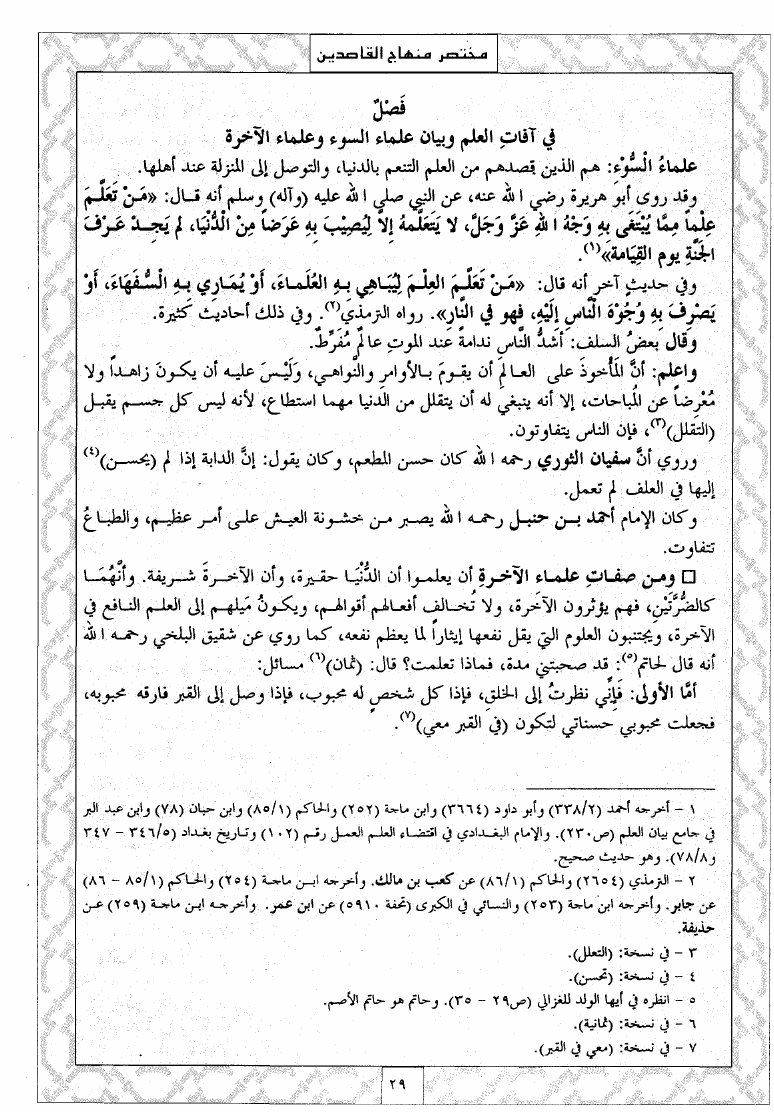 مختصر منهاج القاصدين
فَصْلٌ
في آفاتِ العلم وبيان علماء السوء وعلماء الآخرة
علماءُ الْسُّوْءِ: هم الذين قصدهم من العلم التنعم بالدنيا، والتوصل إلى المنزلة عند أهلها.
وقد روى أبو هريرة رضي الله عنه، عن النبي صلى الله عليه (وآله) وسلم أنه قال: «مَنْ تَعَلَّمَ
عِلْماً مِمَّا يُبْتَغَى بِهِ وَجْهُ اللهِ عَزَّ وَجَلَّ، لا يَتَعَلَّمهُ إلاَّ لِيُصِيْبَ بِهِ عَرَضاً مِنْ الْدُّنْيَا، لم يَجِدْ عَرْفَ
الجَنَّةِ يوم القِيَامة»(١).
وفي حديثٍ آخر أنه قال: «مَنْ تَعَلَّمَ العِلْمَ لِيُبَاهِي بِهِ العُلَماءَ، أَوْ يُمَارِي بِهِ الْسُّفَهَاءَ، أَوْ
يَصْرِفَ بِهِ وُجُوْهَ الْنَّاسِ إلَيْهِ، فهو في النَّارِ». رواه الترمذي(٢). وفي ذلك أحاديث كثيرة.
وقال بعضُ السلف: أشدُّ النَّاسِ ندامةً عند الموتِ عالمٌ مُفَرِّطٌ.
واعلم: أنَّ المأخوذَ على العالمِ أن يقومَ بالأوامرِ والنَّواهي، وَلَيْسَ عليه أن يكونَ زاهداً ولا
مُعْرِضاً عن المباحات، إلا أنه ينبغي له أن يتقلل من الدنيا مهما استطاع، لأنه ليس كل جسم يقبل
(التقلل)(٣)، فإن الناس يتفاوتون.
وروي أنَّ سفيان الثوري رحمه الله كان حسن المطعم، وكان يقول: إنَّ الدابة إذا لم (يحسن)(٤)
إليها في العلف لم تعمل.
وكان الإمام أحمد بن حنبل رحمه الله يصبر من خشونة العيش على أمر عظيم، والطباعُ
تتفاوت.
□ ومن صفاتِ علماء الآخرةِ أن يعلموا أن الدُّنْيَا حقيرة، وأن الآخرةَ شريفة. وأنَّهُمَا
كالضُرَّتَيْنِ، فهم يؤثرون الآخَرة، ولا تُخالف أفعالهم أقوالهم، ويكونُ مَيلهم إلى العلم النافع في
الآخرة، ويجتنبون العلوم التي يقل نفعها إيثاراً لما يعظم نفعه، كما روي عن شقيق البلخي رحمه الله
أنه قال لحاتم(٥): قد صحبتني مدة، فماذا تعلمت؟ قال: (ثمان)(٦) مسائل:
أمَّا الأولى: فَإِنِّي نظرتُ إلى الخلقِ، فإذا كل شخصٍ له محبوب، فإذا وصل إلى القبر فارقه محبوبه،
فجعلت محبوبي حسناتي لتكون (في القبر معي)(٧).
١ - أخرجه أحمد (٣٣٨/٢) وأبو داود (٣٦٦٤) وابن ماجة (٢٥٢) والحاكم (٨٥/١) وابن حبان (٧٨) وابن عبد البر
في جامع بيان العلم (ص٢٣٠). والإمام البغدادي في اقتضاء العلم العمل رقم (١٠٢) وتاريخ بغداد (٣٤٦/٥ - ٣٤٧
و٧٨/٨). وهو حديث صحيح.
٢ - الترمذي (٢٦٥٤) والحاكم (٨٦/١) عن كعب بن مالك. وأخرجه ابن ماجة (٢٥٤) والحاكم (٨٥/١ - ٨٦)
عن جابر. وأخرجه ابن ماجة (٢٥٣) والنسائي في الكبرى (تحفة ٥٩١٠) عن ابن عمر. وأخرجه ابن ماجة (٢٥٩) عن
حذيفة.
٣ - في نسخة: (التعلل).
٤ - في نسخة: (تحسن).
٥ - انظره في أيها الولد للغزالي (ص٢٩ - ٣٥). وحاتم هو حاتم الأصم.
٦ - في نسخة: (ثمانية).
٧ - في نسخة: (معي في القبر).
٢٩